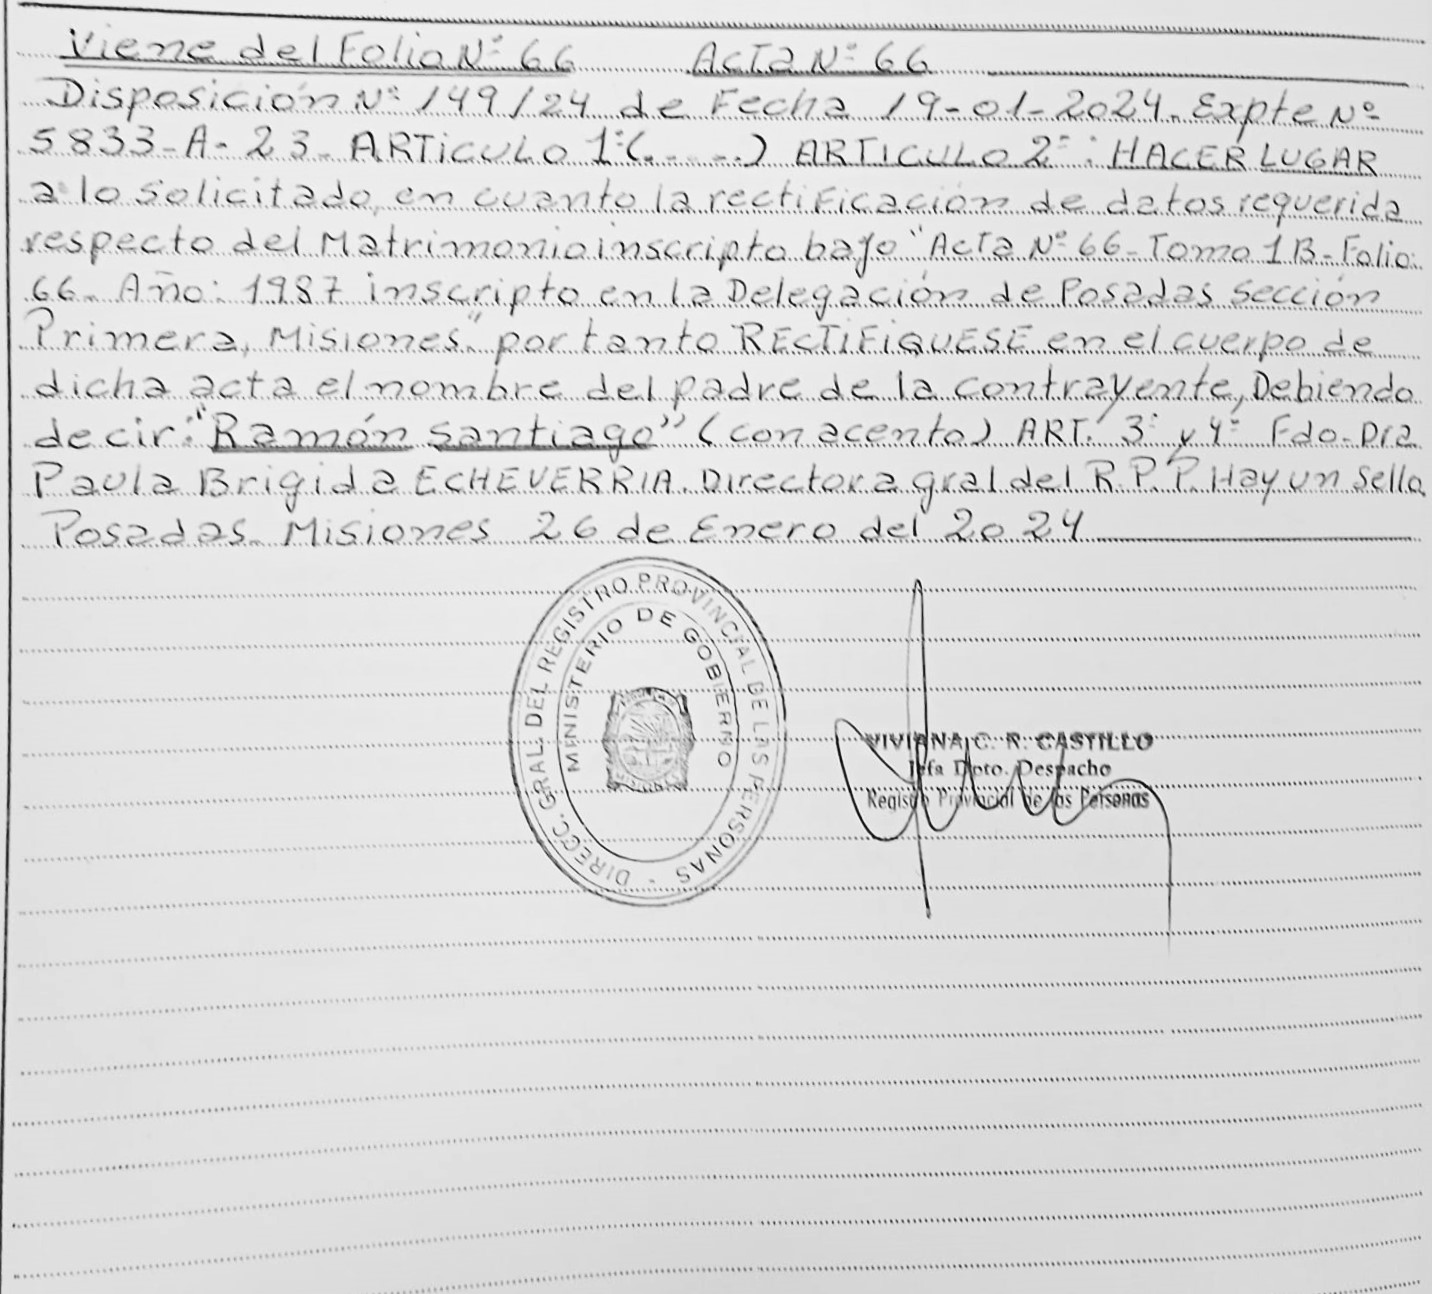 Viene del Folio Nº 66 Acta Nº 66
Disposición Nº 149/24 de Fecha 19-01-2024. Expte Nº
5833-A-23- ARTICULO 1º(.....) ARTICULO 2º: HACER LUGAR
a lo solicitado, en cuanto la rectificación de datos requerida
respecto del Matrimonio inscripto bajo "Acta Nº 66-Tomo 1B-Folio:
66- Año: 1987 inscripto en la Delegación de Posadas Sección
Primera, Misiones". por tanto RECTIFIQUESE en el cuerpo de
dicha acta el nombre del padre de la contrayente, Debiendo
decir: "Ramón Santiago" (con acento) ART. 3º y 4º Fdo. Dra.
Paula Brigida ECHEVERRIA. Directora gral del R.P.P. Hay un Sello.
Posadas. Misiones 26 de Enero del 2024
DIRECC. GRAL. DEL REGISTRO PROVINCIAL DE LAS PERSONAS -
MINISTERIO DE GOBIERNO
VIVIANA C. R. CASTILLO
Jefa Dpto. Despacho
Registro Provincial de las Personas